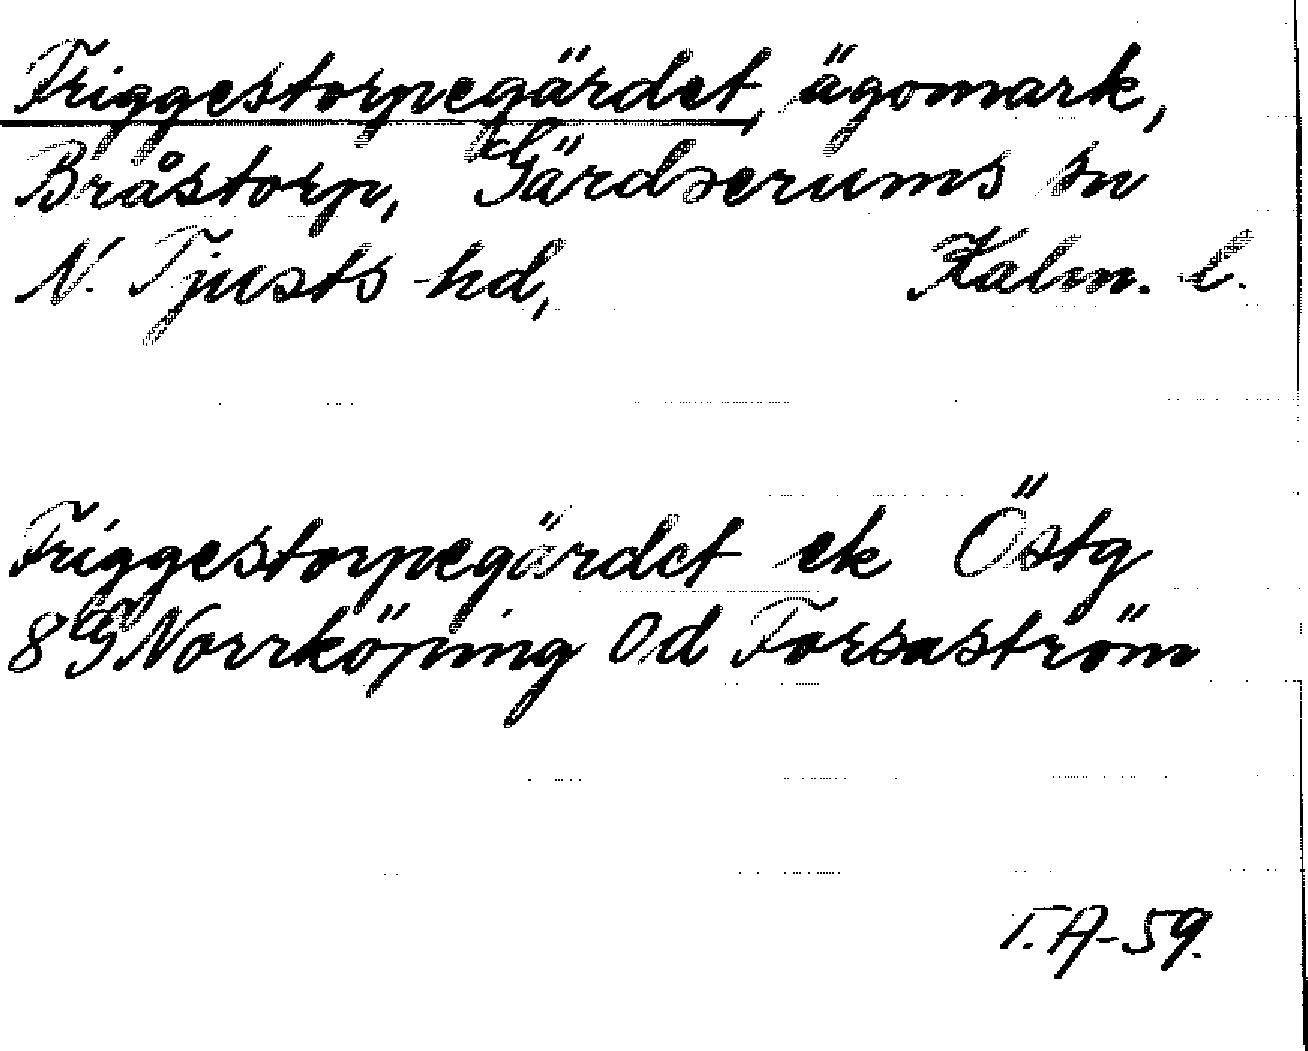 Friggestorpegärdet, ägomark,
Bråstorp, Gärdserums sn
N. Tjusts hd, Kalm. l.
Friggestorpegärdet ek Östg
8G Norrköping 0d Forsaström
T.A-59.